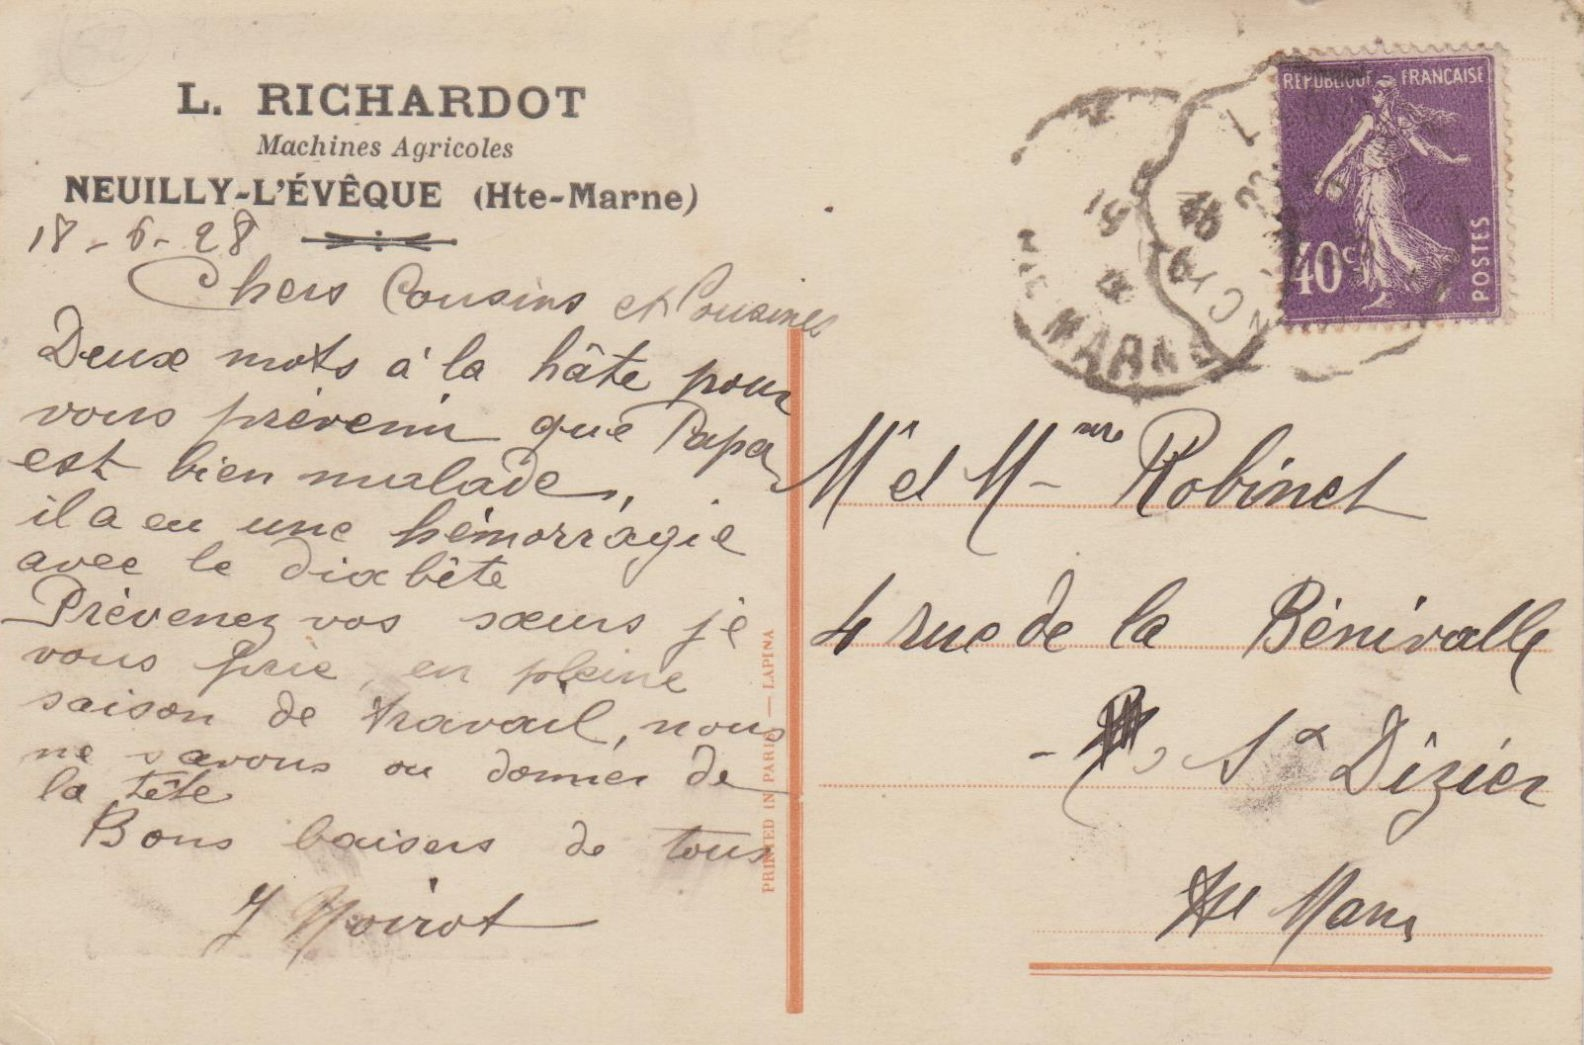 L. RICHARDOT
Machines Agricoles
NEUILLY-L'ÉVÊQUE (Hte-Marne)
18-6-28
Chers Cousins et Cousines
Deux mots à la hâte pour
vous prévenir que Papa
est bien malade,
il a eu une hémorragie
avec le diabète
Prévenez vos sœurs je
vous prie, en pleine
saison de travail, nous
ne savons ou donner de
la tête
Bons baisers de tous
J Noirot
PRINTED IN PARIS — LAPINA
REPUBLIQUE FRANÇAISE
40c
POSTES
HTE MARNE
Mr et Mme Robinet
4 rue de la Bénivalle
St Dizier
Hte Marne